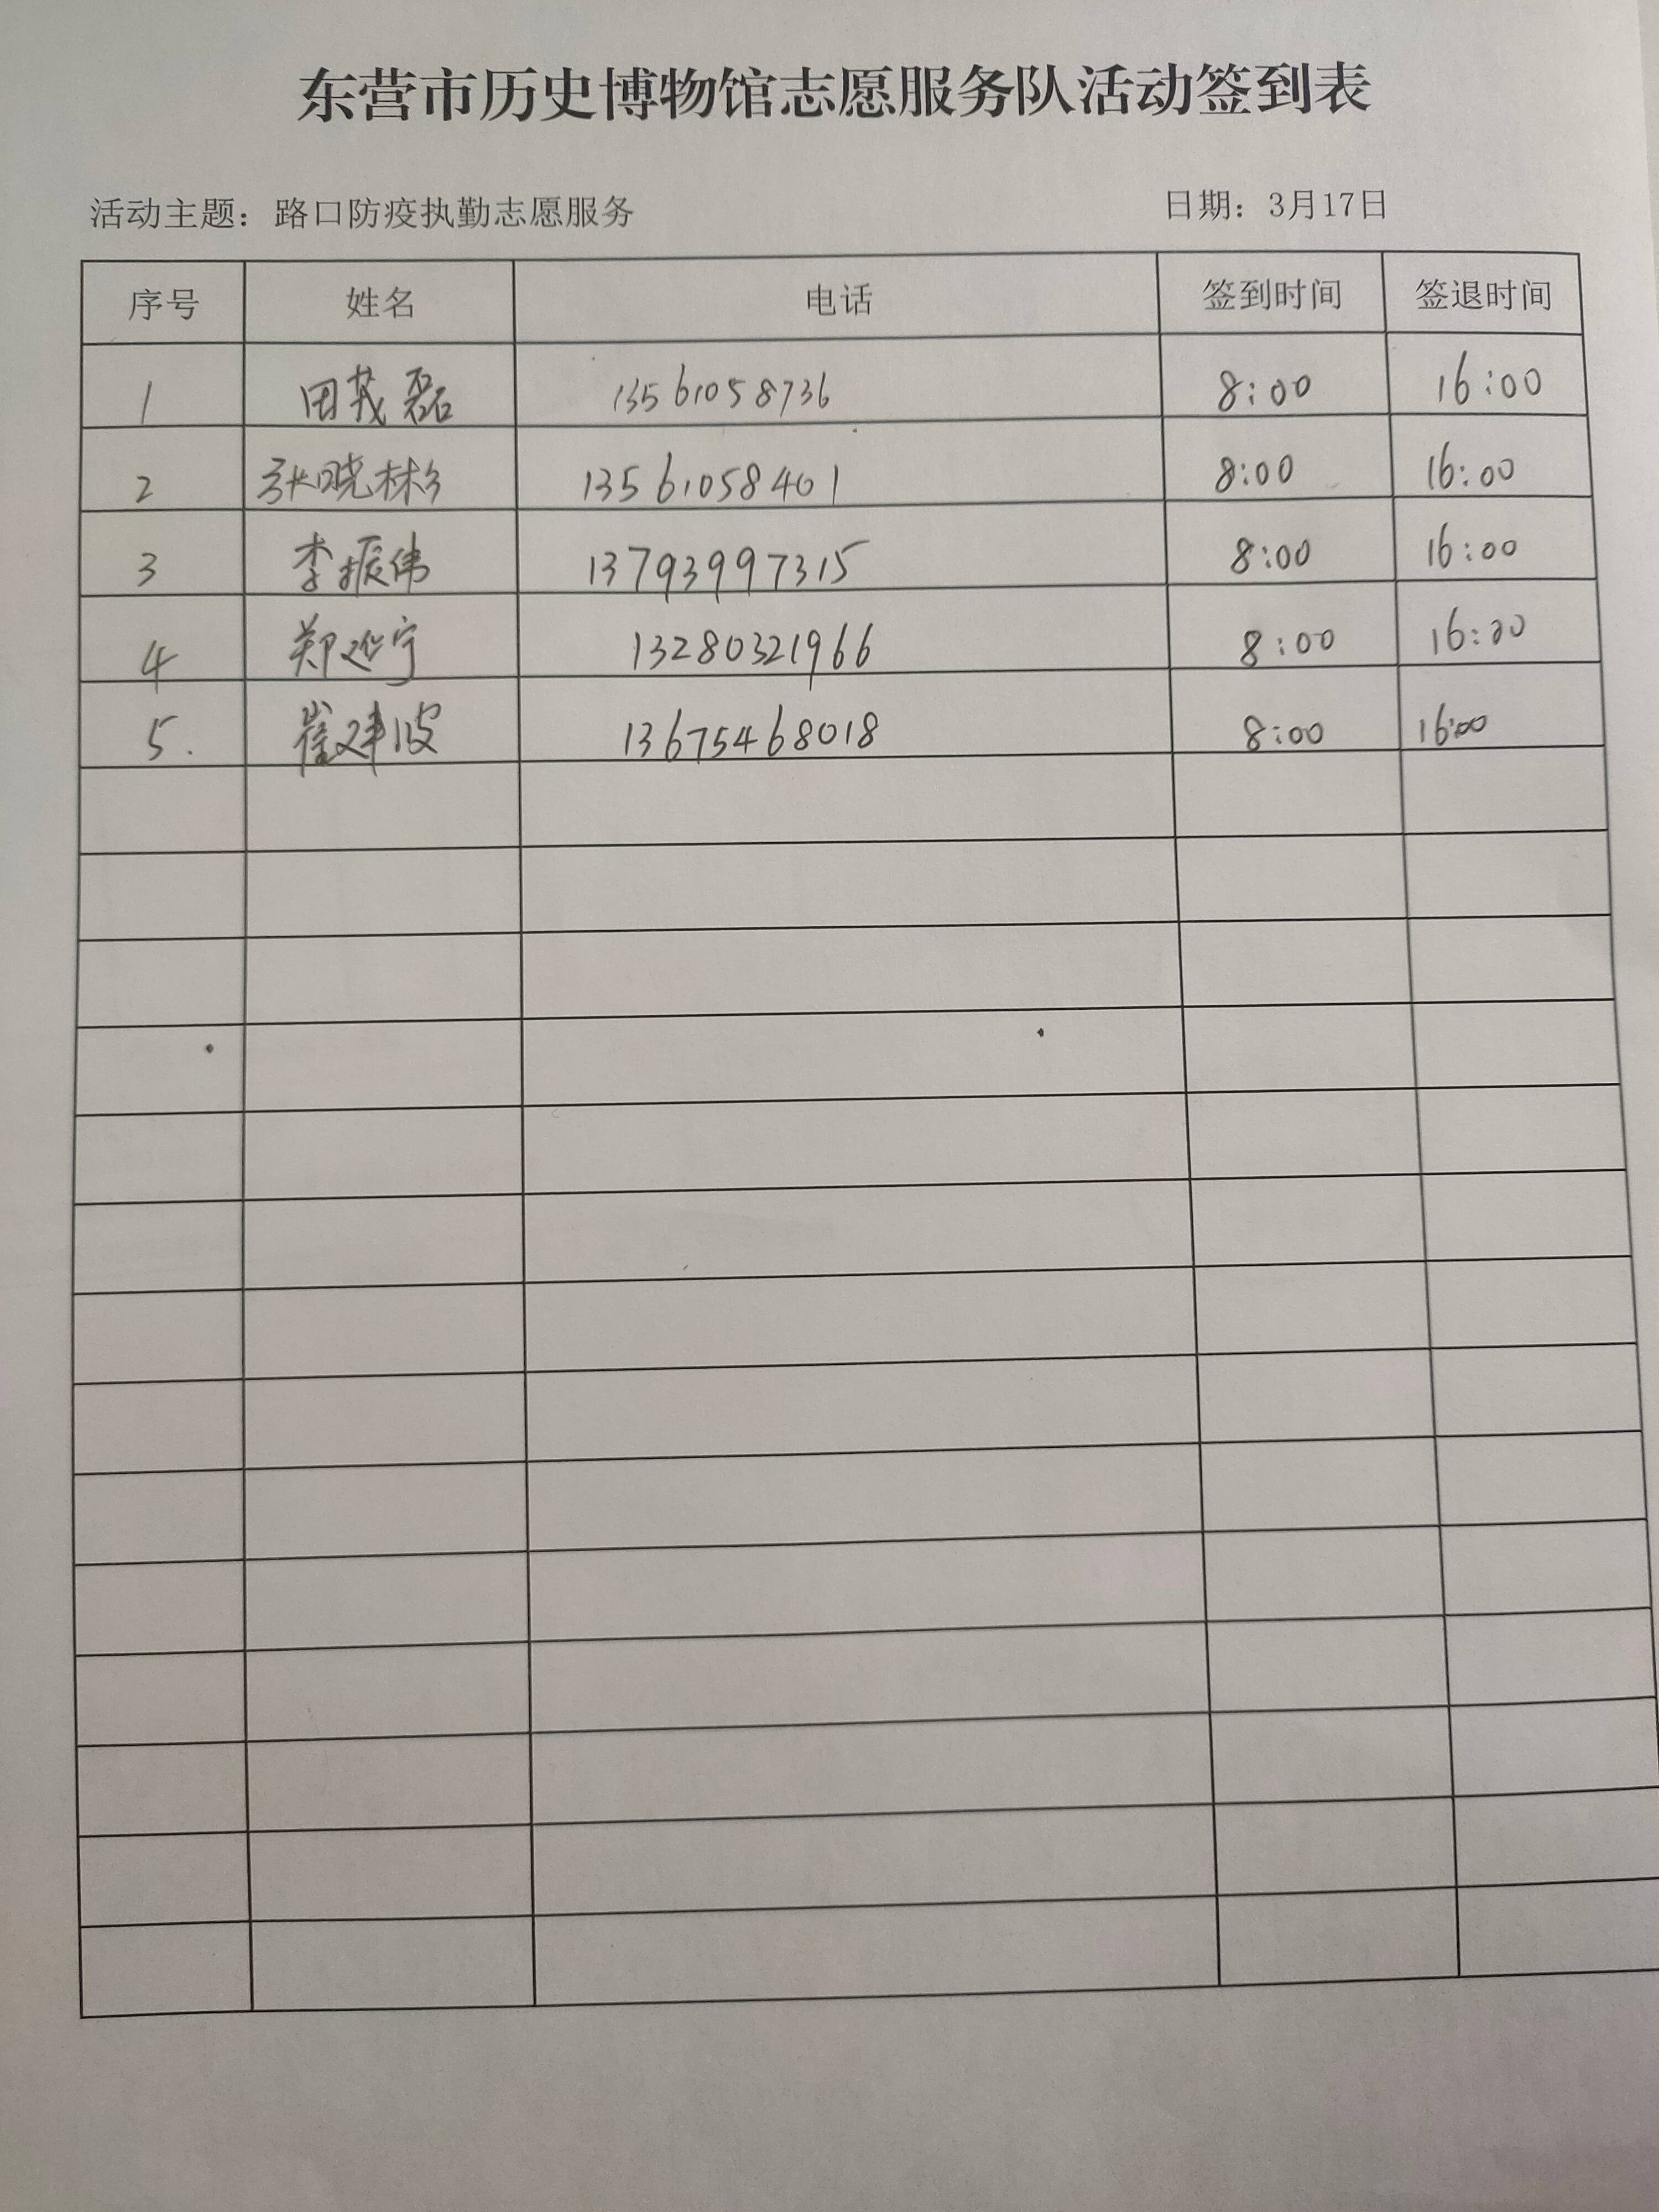 东营市历史博物馆志愿服务队活动签到表
活动主题：路口防疫执勤志愿服务 日期：3月17日
序号 姓名 电话 签到时间 签退时间
1 田茂磊 13561058736 8:00 16:00
2 张晓彬 13561058401 8:00 16:00
3 李振伟 13793997315 8:00 16:00
4 郑 宁 13280321966 8:00 16:00
5. 崔建波 13675468018 8:00 16:00